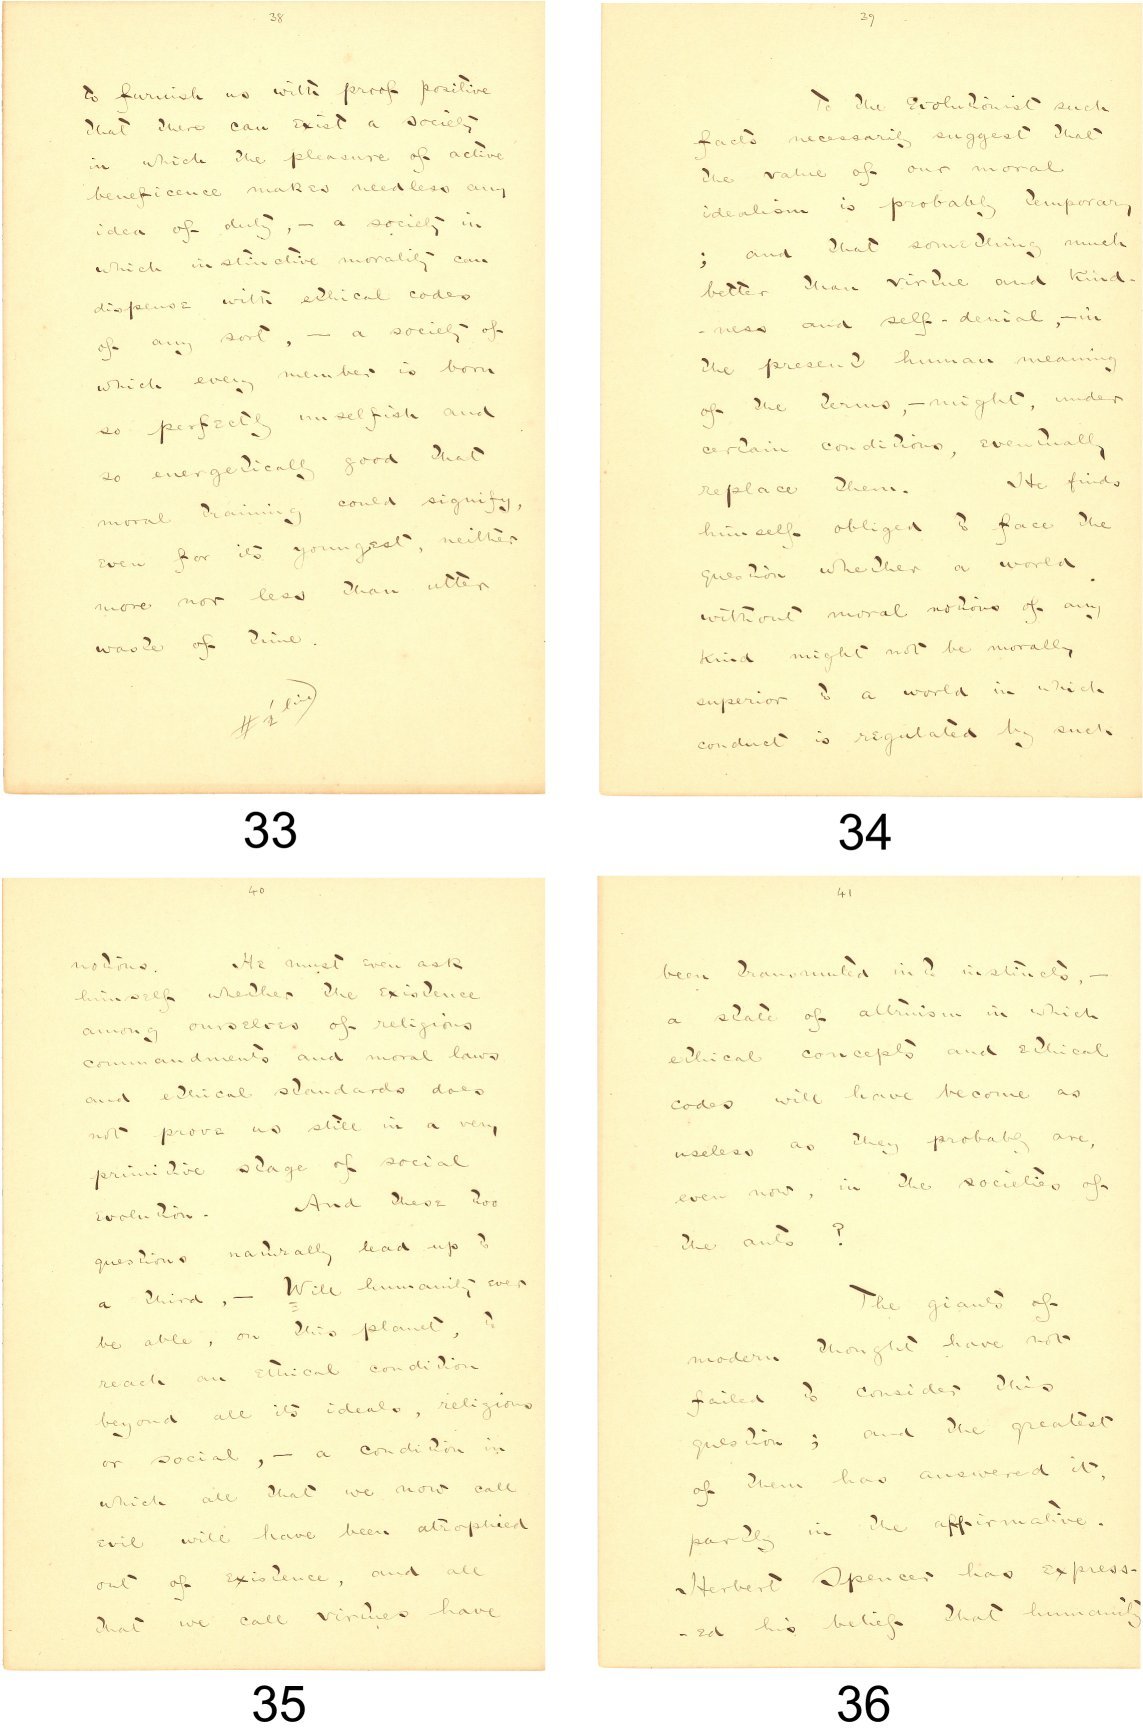 38
to furnish us with proof positive
that there can exist a society
in which the pleasure of active
beneficence makes needless any
idea of duty, — a society in
which instinctive morality can
dispense with ethical codes
of any sort, — a society of
which every member is born
so perfectly unselfish and
so energetically good that
moral training could signify,
even for its youngest, neither
more nor less than utter
waste of time.
# 1/2 line)
33
39
To the Evolutionist such
facts necessarily suggest that
the value of our moral
idealism is probably temporary
; and that something much
better than virtue and kind-
-ness and self-denial, — in
the present human meaning
of the terms, — might, under
certain conditions, eventually
replace them. He finds
himself obliged to face the
question whether a world
without moral notions of any
kind might not be morally
superior to a world in which
conduct is regulated by such
34
40
notions. He must even ask
himself whether the existence
among ourselves of religious
commandments and moral laws
and ethical standards does
not prove us still in a very
primitive stage of social
evolution. And these two
questions naturally lead up to
a third, — Will humanity ever
be able, on this planet, to
reach an ethical condition
beyond all its ideals, religious
or social, — a condition in
which all that we now call
evil will have been atrophied
out of existence, and all
that we call virtues have
35
41
been transmuted into instincts, —
a state of altruism in which
ethical concepts and ethical
codes will have become as
useless as they probably are,
even now, in the societies of
the ants ?
The giants of
modern thought have not
failed to consider this
question ; and the greatest
of them has answered it,
partly in the affirmative.
Herbert Spencer has express-
-ed his belief that humanity
36